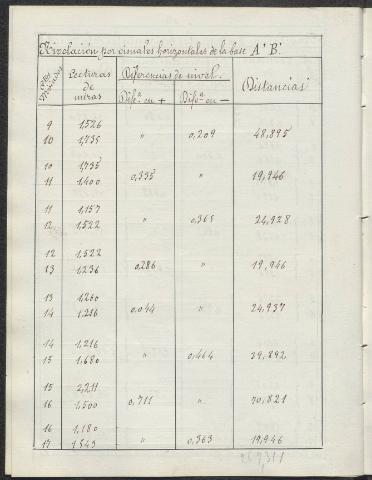 Nivelación por visuales horizontales de la base A' B'
Lecturas de miras Diferencias de nivel. Distancias
Difª en + Difª en —
9 1,526
" 0,209 48,895
10 1,735
10 1,735
0,335 " 19,946
11 1,400
11 1,157
" 0,365 24,928
12 1,522
12 1,522
0,286 " 19,946
13 1,236
13 1,260
0,044 " 24,937
14 1,216
14 1,216
" 0,464 39,892
15 1,680
15 2,211
0,711 " 70,821
16 1,500
16 1,180
" 0,363 19,946
17 1,543
269,311